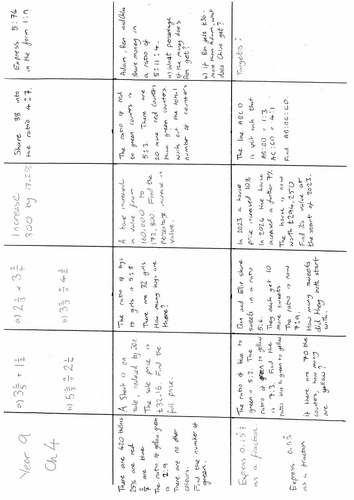 Year 9
Ch 4
a) 3 3/5 + 1 1/2
b) 5 3/5 ÷ 2 1/2
a) 2 1/3 × 3 3/4
b) 3 3/5 ÷ 4 1/2
Increase
300 by 17.2%
Share 88 into
the ratio 4:7.
Express 5:76
in the form 1:n
There are 420 balls
25% are red
are blue
The ratio of yellow:green
is 2:9.
There are no other
colours.
Find the number of
green.
A shirt is on
sale, reduced by 20%
The sale price is
£32.16. Find the
full price.
The ratio of boys
to girls is 5:8
There are 72 girls
How many boys are
there?
A house increased
in value from
160,000 to
172,800. Find the
percentage increase in
value.
The ratio of red
to green counters is
5:3. There are
20 more red counters
than green counters.
Work out the total
number of counters
Adam, Ben and Chloe
share money in
a ratio of
5:11:4.
a) What percentage
of the money does
Ben get?
b) If Ben gets £30
more than Adam, what
does Chloe get?
Express 0.157
as a fraction
Express 0.53
as a fraction
The ratio of blue to
green = 5:2. The
ratio of green to yellow
is 7:3. Find the
ratio blue to green to yellow
If there are 70
counters, how many
are yellow?
Clive and Ellie share
sweets in a ratio
5:6.
They each get 10
more sweets
The ratio is now
7:9.
How many sweets
did they both start
with.
In 2023 a house
price increased 10%
In 2024 the house
increased a further 7%
The house is now
worth £294,250
Find its value at
the start of 2023.
The line ABCD
is split such that
AB:BD = 1:3.
AC:CD = 4:1
Find AB:BC:CD.
Targets: